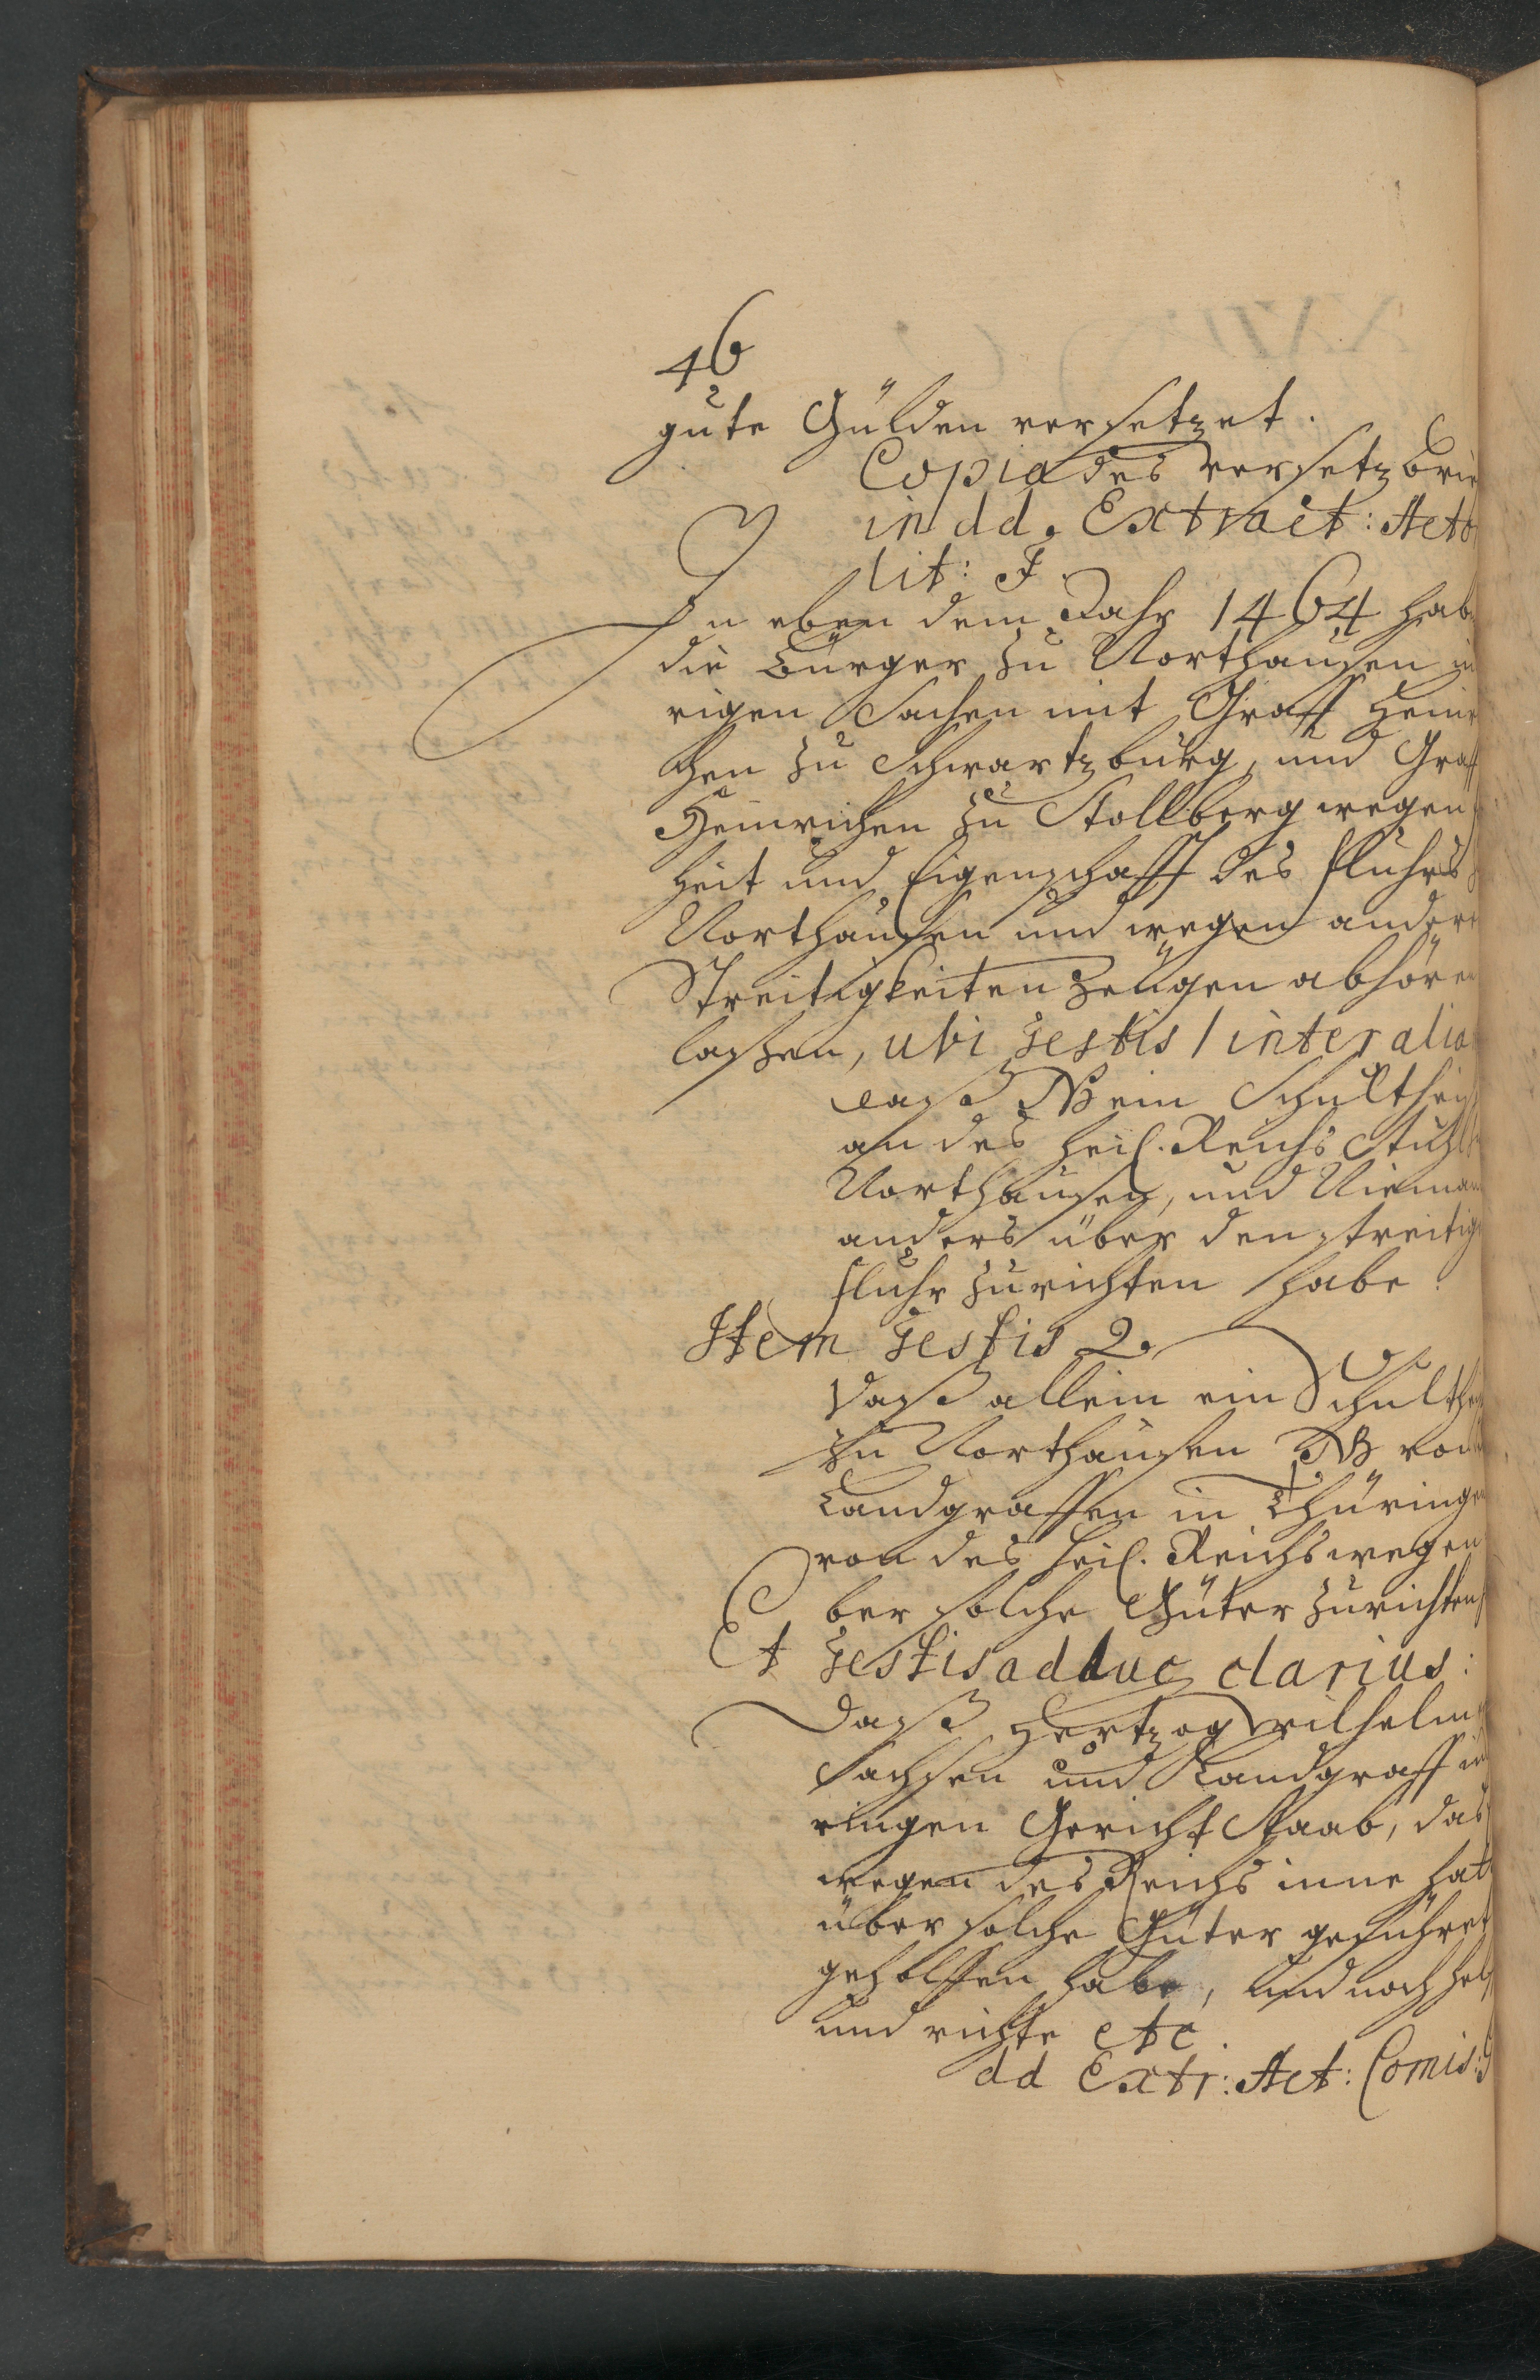 46
gute Gülden versetzet.
Copia des versetz brie
in dd. Extract: Acto
lit: F.
In eben dem Jahr 1464 hab
die Bürger zu Northausen in
rigen Sachen mit Graff Heinr
chen zu Schwartzburg, und Graff
Heinrichen zu Stollberg wegen
heit und Eigenschafft des fluhrs
Northausen und wegen andere
Streitigkeiten Zeugen abhören
laßen, ubi Testis 1 inter alia
daß NB ein Schultheiß
an des Heil. Reichs Stuhl
Northausen, und Nieman
anders über den streitig
fluhr zurichten habe.
Item Testis 2.
daß allein ein Schulthei
zu Northausen NB von
Landgraffen in Thüringen
von des Heil. Reichs wegen
ber solche Güter zurichten
Et Testis adhuc clarius:
daß Hertzog Wilhelm
Sachsen und Landgraff in
ringen Gericht Staab, das
wegen des Reichs inne hat
über solche Güter geführet
geholffen habe, und noch helf
und richte etc.
dd Extr: Act: Comis: